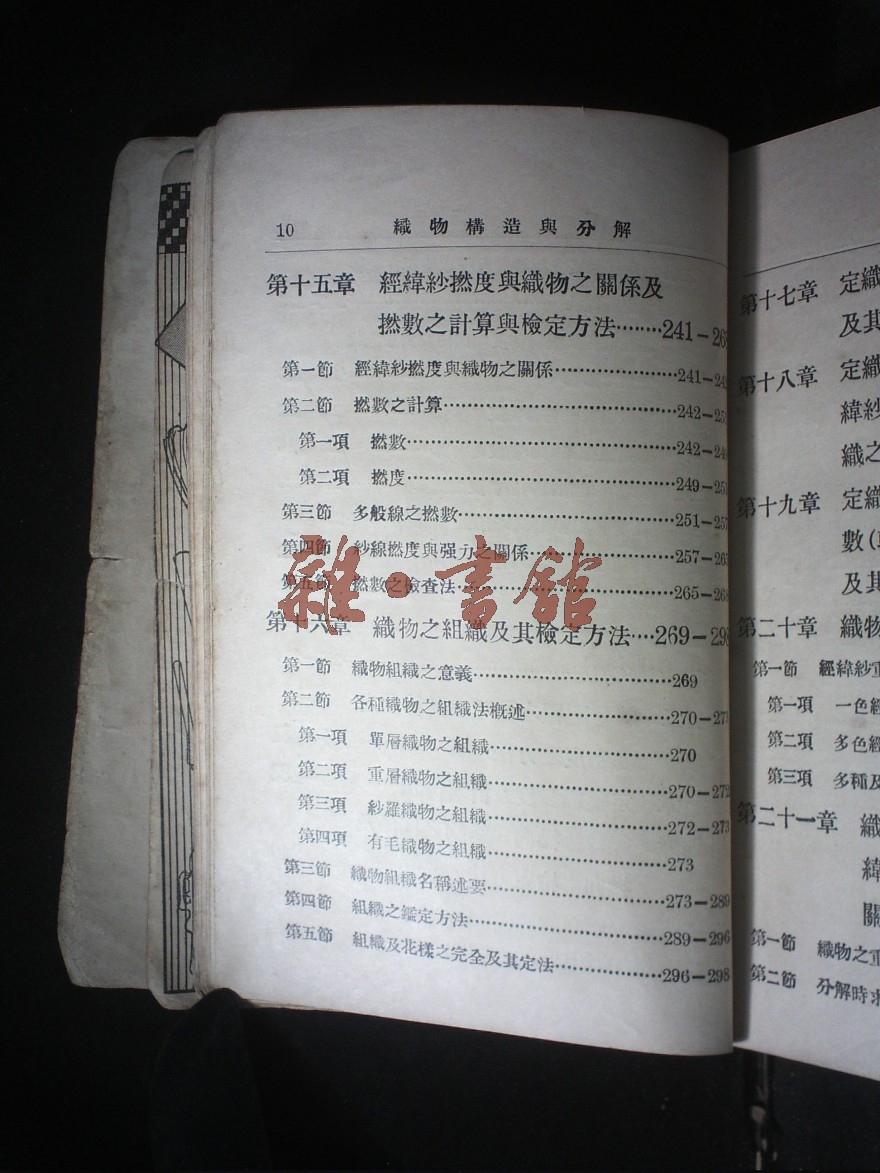 10 織物構造與分解
第十五章 經緯紗撚度與織物之關係及
撚數之計算與檢定方法………241—26
第一節 經緯紗撚度與織物之關係………………241—24
第二節 撚數之計算………………242—25
第一項 撚數………………242—24
第二項 撚度………………249—25
第三節 多般線之撚數………………251—257
第四節 紗線撚度與强力之關係………………257—26
第五節 撚數之檢查法………………265—268
第十六章 織物之組織及其檢定方法……269—29
第一節 織物組織之意義………………269
第二節 各種織物之組織法概述………………270—27
第一項 單層織物之組織………………270
第二項 重層織物之組織………………270—272
第三項 紗羅織物之組織………………272—273
第四項 有毛織物之組織………………273
第三節 織物組織名稱述要………………273—289
第四節 組織之鑑定方法………………289—296
第五節 組織及花樣之完全及其定法………………296—298
雜·書館
第十七章 定織
及其
第十八章 定織
緯紗
織之
第十九章 定織
數(
及其
第二十章 織物
第一節 經緯紗重
第一項 一色經
第二項 多色經
第三項 多種及
第二十一章 織
緯
關
第一節 織物之重
第二節 分解時求